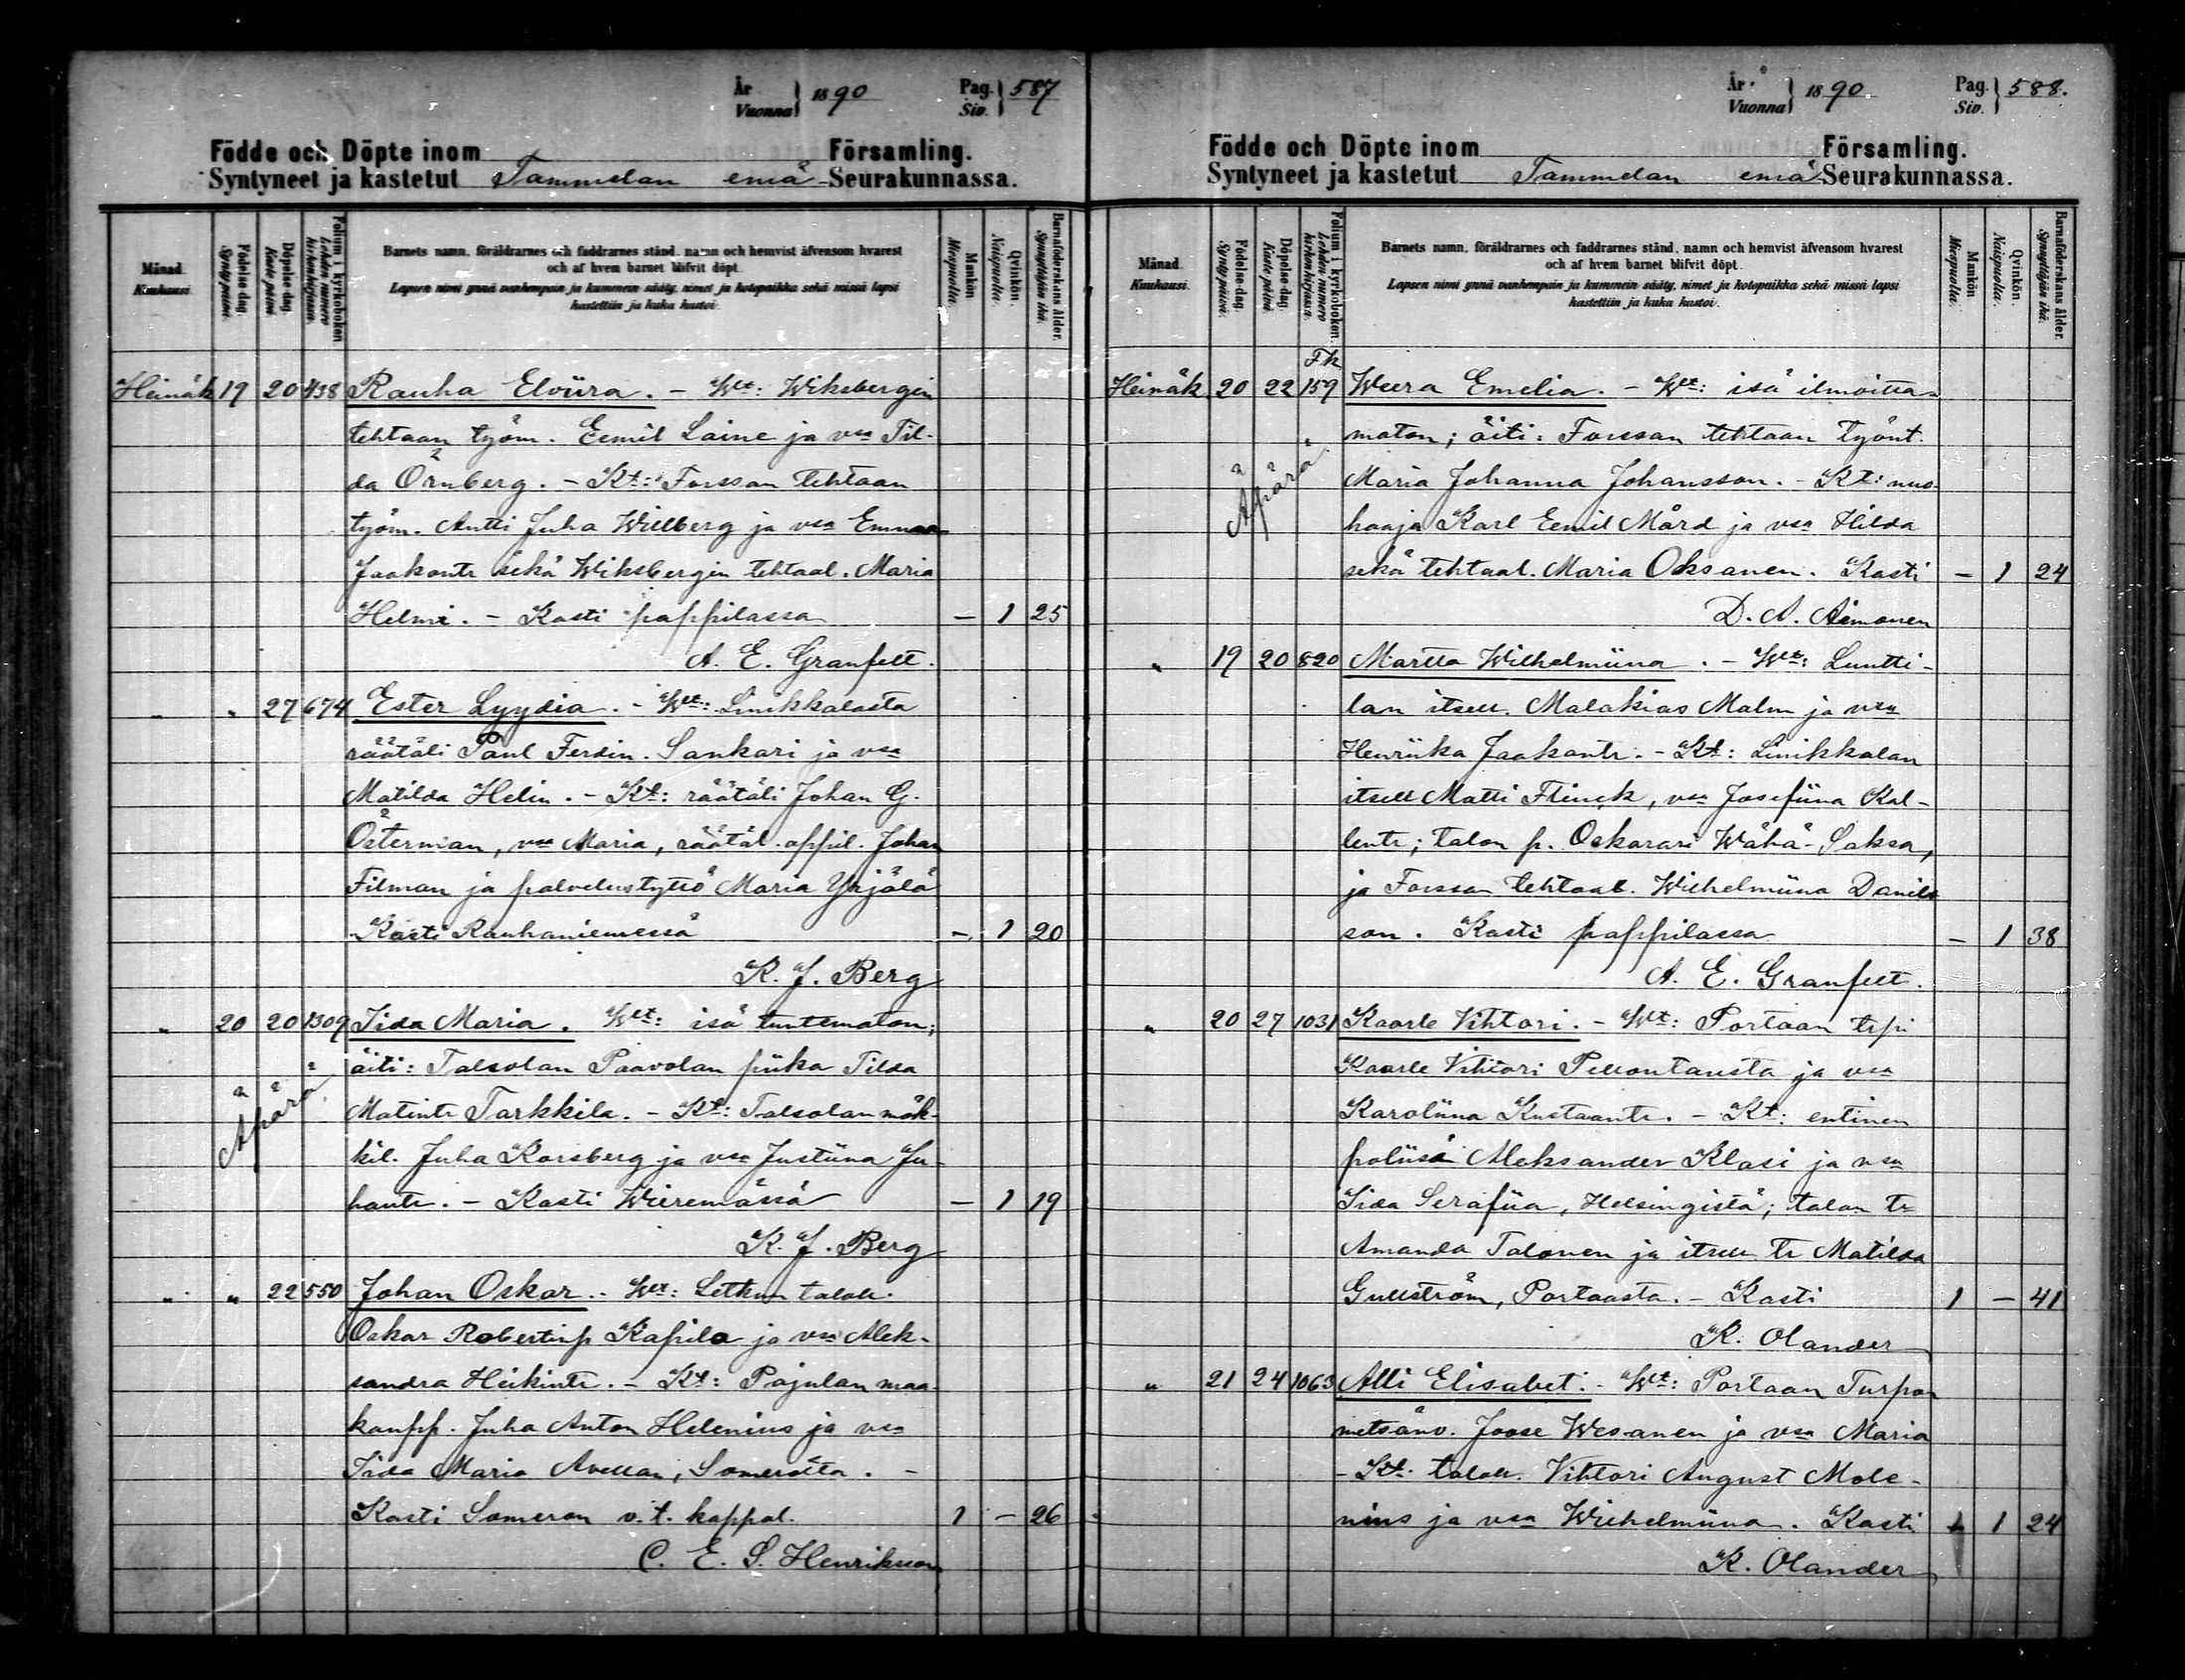 År
Vuonna } 1890
Pag.
Siv. } 587
Födde och Döpte inom Församling.
Syntyneet ja kastetut Tammelan emä Seurakunnassa.
Månad.
Kuukausi.
Födelse-dag.
Syntypäivä.
Döpelse-dag.
Kaste päivä.
Folium i kyrkoboken.
Lehden numero kirkonkirjassa.
Barnets namn, föräldrarnes och faddrarnes stånd, namn och hemvist äfvensom hvarest
och af hvem barnet blifvit döpt.
Lapsen nimi ynnä vanhempain ja kummein sääty, nimet ja kotopaikka sekä missä lapsi
kastettiin ja kuka kastoi.
Mankön.
Miespuolia.
Qvinkön.
Naispuolia.
Barnaföderskans ålder.
Synnyttäjän ikä.
Heinäk 19 20 438 Rauha Elviira. – Wt: Wiksbergin
tehtaan työm. Eemil Laine ja vsa Til-
da Örnberg. – Kt: Forssan tehtaan
työm. Antti Juha Willberg ja vsa Emma
Jaakontr sekä Wiksbergin tehtaal. Maria
Helmi. – Kasti pappilassa – 1 25
A. E. Granfelt.
„ „ 27 674 Ester Lyydia. – Wt: Linikkalasta
räätäli Paul Ferdin. Sankari ja vsa
Matilda Helin. – Kt: räätäli Johan G.
Österman, vsa Maria, räätäl. oppil. Johan
Filman ja palvelustyttö Maria Yrjälä
Kasti Rauhaniemessä – 1 20
K. J. Berg
„ 20 20 1309 Iida Maria. Wt: isä tuntematon;
äiti: Talsolan Paavolan piika Tilda
Äpärä
Matintr Tarkkila. – Kt: Talsolan mök-
kil. Juha Korsberg ja vsa Justiina Ju-
hantr. – Kasti Wieremässä – 1 19
K. J. Berg
„ „ 22 550 Johan Oskar. – Wt: Letkun talol.
Oskar Robertinp Kapila ja vsa Alek-
sandra Heikintr. – Kt: Pajulan maa-
kaupp. Juha Anton Helenius ja vsa
Iida Maria Avellan, Somerolta. –
Kasti Someron v.t. kappal. 1 – 26
C. E. S. Henriksson
År
Vuonna } 1890
Pag.
Siv. } 588.
Födde och Döpte inom Församling.
Syntyneet ja kastetut Tammelan emä Seurakunnassa.
Månad.
Kuukausi.
Födelse-dag.
Syntypäivä.
Döpelse-dag.
Kaste päivä.
Folium i kyrkoboken.
Lehden numero kirkonkirjassa.
Barnets namn, föräldrarnes och faddrarnes stånd, namn och hemvist äfvensom hvarest
och af hvem barnet blifvit döpt.
Lapsen nimi ynnä vanhempain ja kummein sääty, nimet ja kotopaikka sekä missä lapsi
kastettiin ja kuka kastoi.
Mankön.
Miespuolia.
Qvinkön.
Naispuolia.
Barnaföderskans ålder.
Synnyttäjän ikä.
Fk
Heinäk 20 22 159 Weera Emelia. – Wt: isä ilmoitta-
maton; äiti: Forssan tehtaan työnt.
Äpärä
Maria Johanna Johansson. – Kt: nuo-
hooja Karl Eemil Mård ja vsa Hilda
sekä tehtaal. Maria Oksanen. Kasti – 1 24
D. A. Aimonen
„ 19 20 820 Martta Wilhelmiina. – Wt: Luutti-
lan itsell. Malakias Malm ja vsa
Henriika Jaakontr. – Kt: Linikkalan
itsell Matti Flinck, vsa Josefiina Kal-
lentr; talon p. Oskarari Wähä-Saksa,
ja Forssan tehtaal. Wilhelmiina Daniels
son. Kasti pappilassa – 1 38
A. E. Granfelt.
„ 20 27 1031 Kaarle Vihtori. – Wt: Portaan trpi
Kaarle Vihtori Pellontausta ja vsa
Karoliina Kustaantr. – Kt: entinen
poliisi Aleksander Klasi ja vsa
Iida Serafiia, Helsingistä; talon tr
Amanda Talonen ja itsell tr Matilda
Gullström, Portaasta. – Kasti 1 – 41
K. Olander
„ 21 24 1063 Alli Elisabet. – Wt: Portaan Turpon
metsänv. Joose Wesanen ja vsa Maria
– Kt. talol. Vihtori August Mole-
nius ja vsa Wilhelmiina. Kasti 1 24
K. Olander